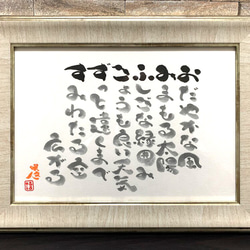 おだやかな風
みまもる太陽
ふしぎな
きょうも良い天気
ずっと遠くまで
すみわたる空
広がる